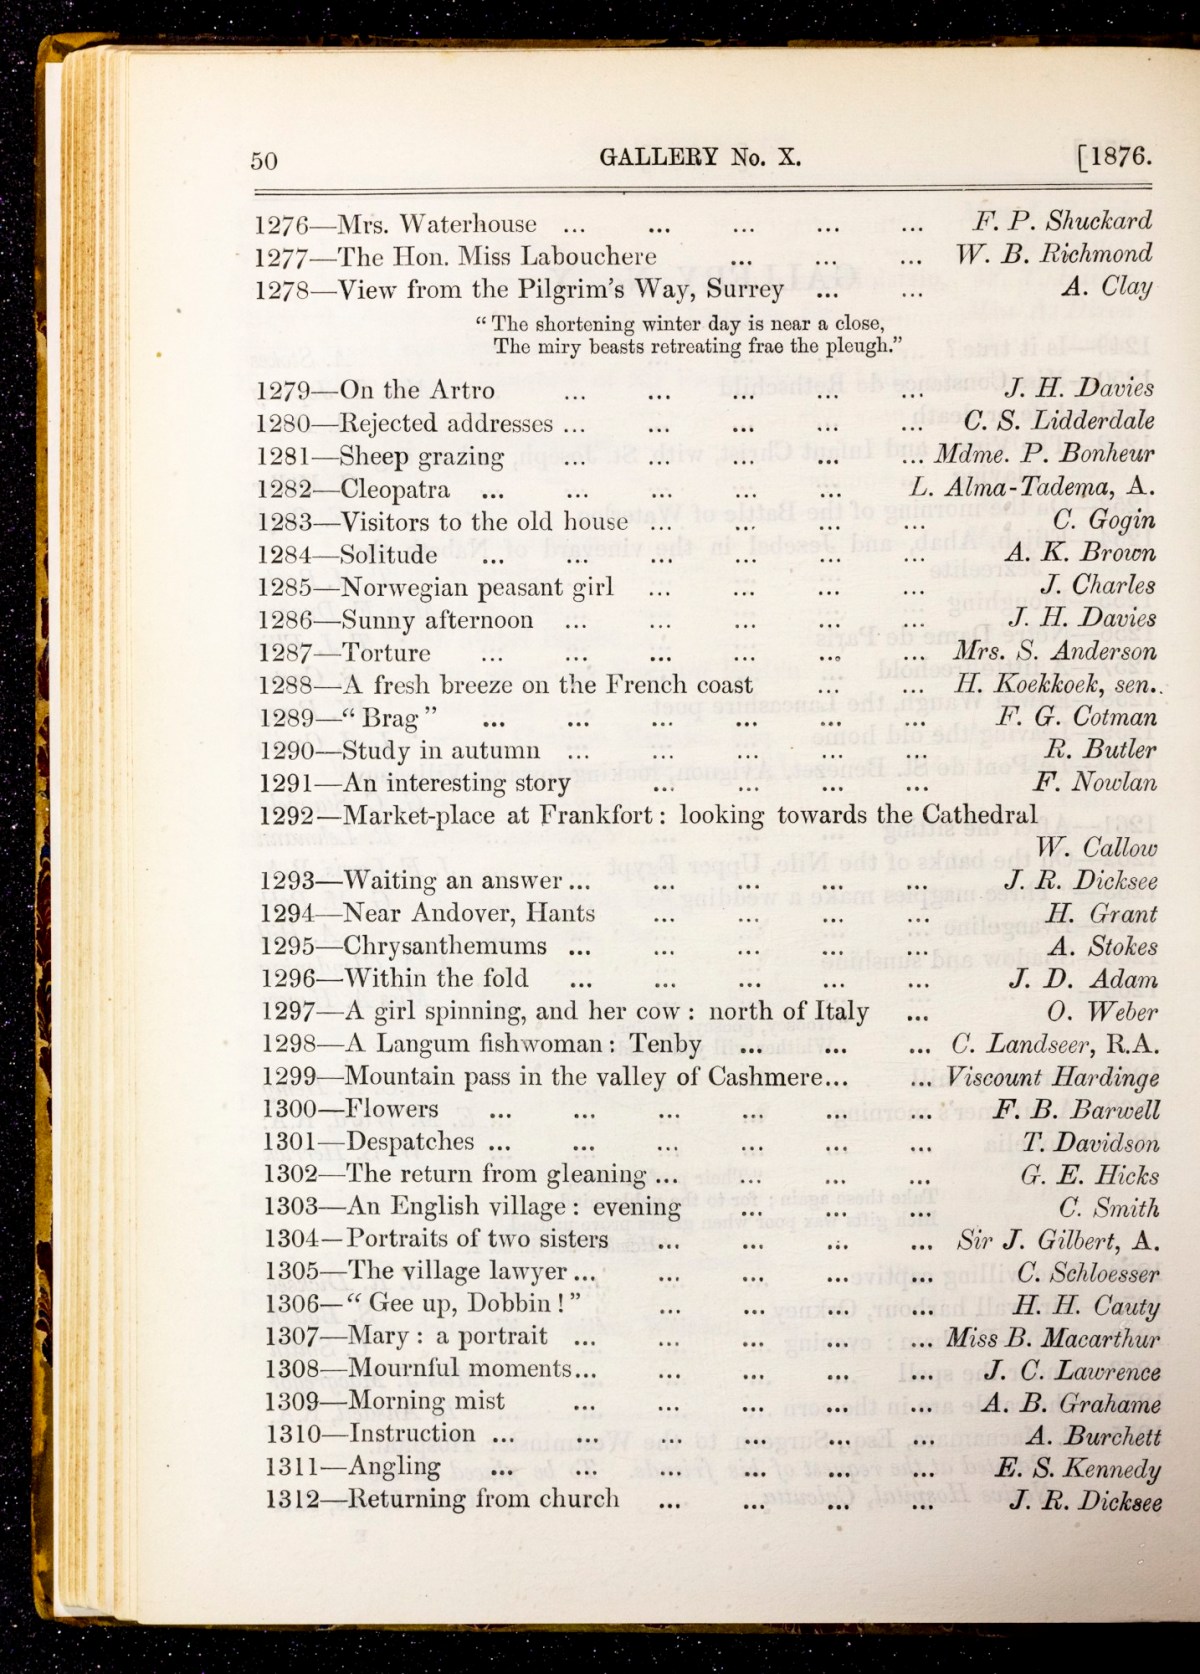 50 GALLERY No. X. [1876.
1276—Mrs. Waterhouse ... ... ... ... ... F. P. Shuckard
1277—The Hon. Miss Labouchere ... ... ... W. B. Richmond
1278—View from the Pilgrim's Way, Surrey ... ... A. Clay
“ The shortening winter day is near a close,
The miry beasts retreating frae the pleugh.”
1279—On the Artro ... ... ... ... ... J. H. Davies
1280—Rejected addresses ... ... ... ... ... C. S. Lidderdale
1281—Sheep grazing ... ... ... ... ... Mdme. P. Bonheur
1282—Cleopatra ... ... ... ... ... L. Alma-Tadema, A.
1283—Visitors to the old house ... ... ... ... C. Gogin
1284—Solitude ... ... ... ... ... ... A. K. Brown
1285—Norwegian peasant girl ... ... ... ... J. Charles
1286—Sunny afternoon ... ... ... ... ... J. H. Davies
1287—Torture ... ... ... ... ... ... Mrs. S. Anderson
1288—A fresh breeze on the French coast ... ... H. Koekkoek, sen.
1289—“ Brag ” ... ... ... ... ... ... F. G. Cotman
1290—Study in autumn ... ... ... ... ... R. Butler
1291—An interesting story ... ... ... ... F. Nowlan
1292—Market-place at Frankfort : looking towards the Cathedral
W. Callow
1293—Waiting an answer ... ... ... ... ... J. R. Dicksee
1294—Near Andover, Hants ... ... ... ... H. Grant
1295—Chrysanthemums ... ... ... ... ... A. Stokes
1296—Within the fold ... ... ... ... ... J. D. Adam
1297—A girl spinning, and her cow : north of Italy ... O. Weber
1298—A Langum fishwoman : Tenby ... ... ... C. Landseer, R.A.
1299—Mountain pass in the valley of Cashmere... ... Viscount Hardinge
1300—Flowers ... ... ... ... ... ... F. B. Barwell
1301—Despatches ... ... ... ... ... ... T. Davidson
1302—The return from gleaning ... ... ... ... G. E. Hicks
1303—An English village : evening ... ... ... C. Smith
1304—Portraits of two sisters ... ... ... ... Sir J. Gilbert, A.
1305—The village lawyer ... ... ... ... ... C. Schloesser
1306—“ Gee up, Dobbin ! ” ... ... ... ... H. H. Cauty
1307—Mary : a portrait ... ... ... ... ... Miss B. Macarthur
1308—Mournful moments... ... ... ... ... J. C. Lawrence
1309—Morning mist ... ... ... ... ... A. B. Grahame
1310—Instruction ... ... ... ... ... ... A. Burchett
1311—Angling ... ... ... ... ... ... E. S. Kennedy
1312—Returning from church ... ... ... ... J. R. Dicksee